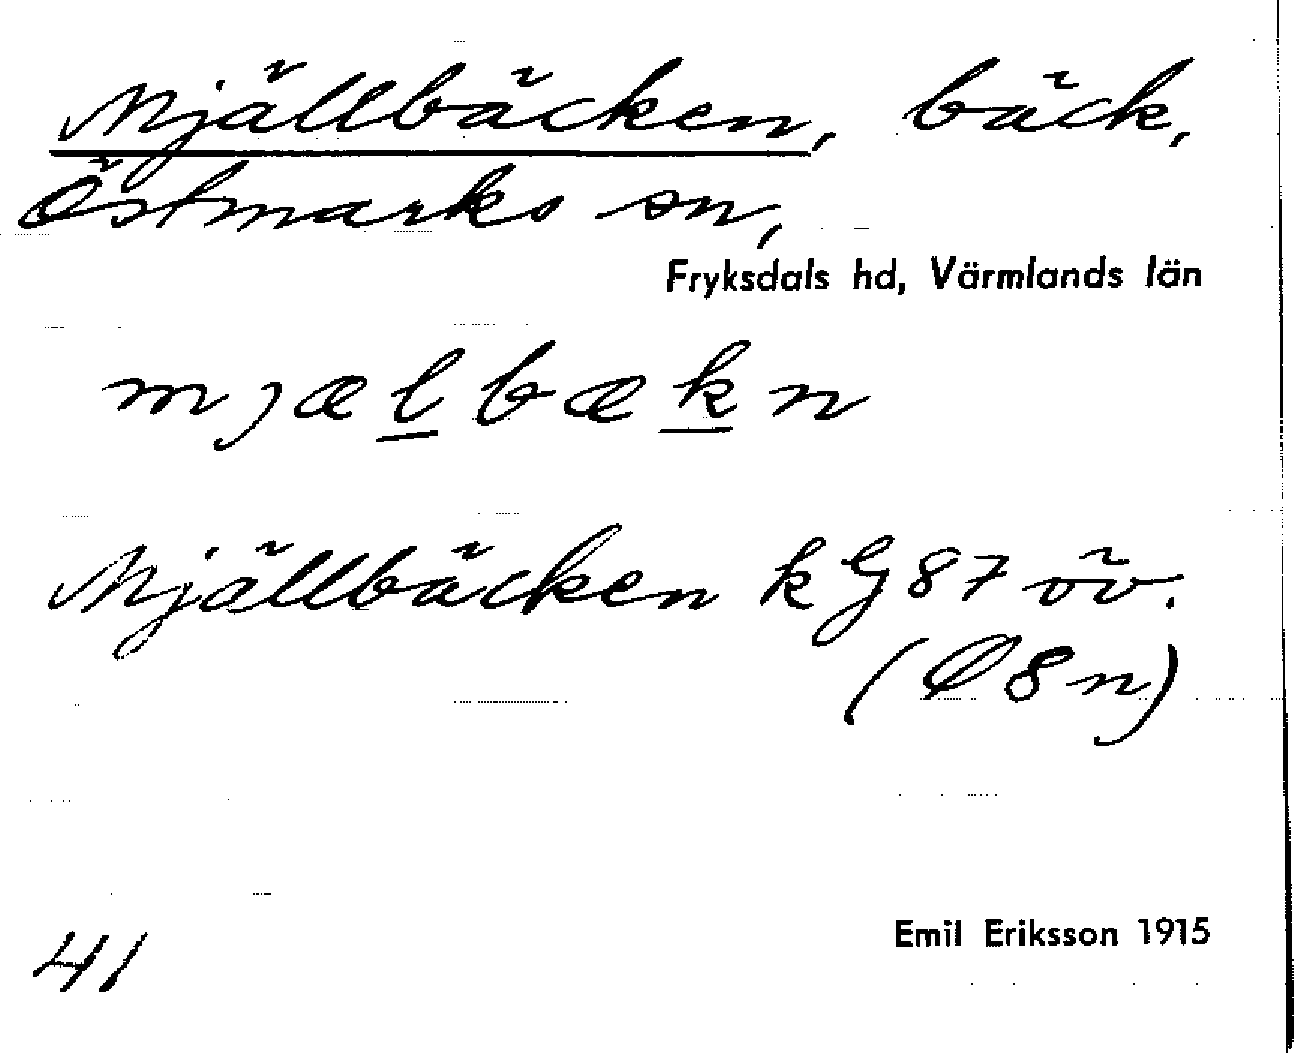 Mjällbäcken, bäck,
Östmarks sn,
Fryksdals hd, Värmlands län
mjælbækn
Mjällbäcken kG87 öv.
(Ø8n)
Emil Eriksson 1915
41